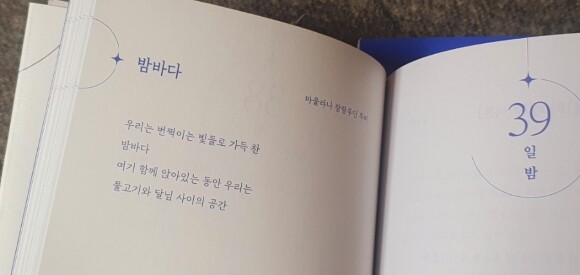 밤바다
마울라나 잘랄루딘 루미
우리는 번쩍이는 빛들로 가득 찬
밤바다
여기 함께 앉아있는 동안 우리는
물고기와 달님 사이의 공간
39
일
밤